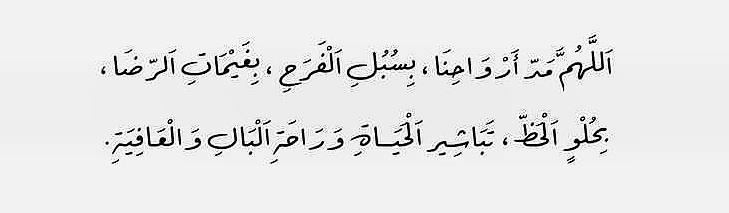 اَللَّهُمَّ مَدّ أَرْوَاحِنَا ، بِسُبُلِ اَلْفَرَحِ ، بِغَيْمَاتِ اَلرّضَا ،
بِحُلْوِ اَلْحَظّ ، تَبَاشِير اَلْحَيَاةِ وَرَاحَةِ اَلْبَالِ وَالْعَافِيَةِ .